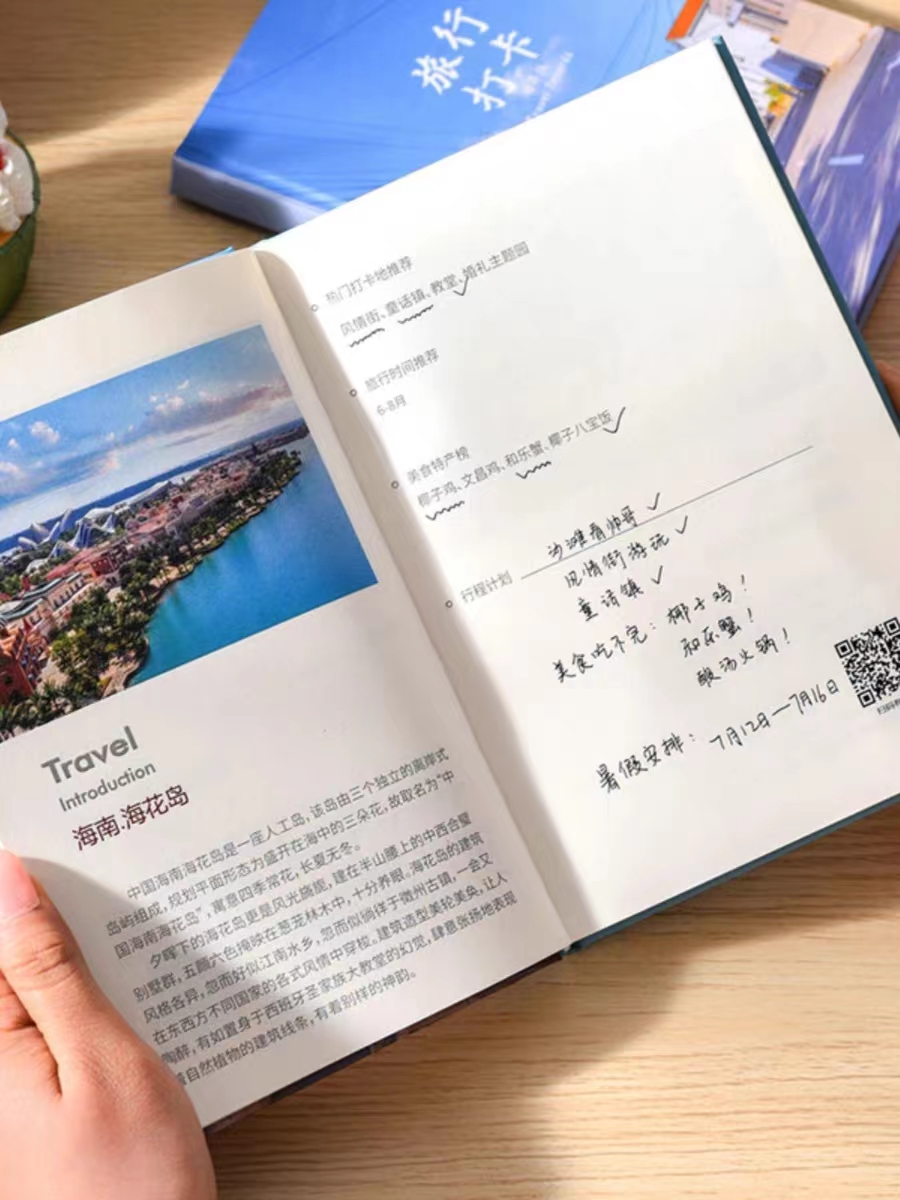 旅行
打卡
Travel
Introduction
海南.海花岛
中国海南海花岛是一座人工岛，该岛由三个独立的离岸式
岛屿组成，规划平面形态为盛开在海中的三朵花，故取名为“中
国海南海花岛”，寓意四季常花，长夏无冬。
夕晖下的海花岛更是风光旖旎，建在半山腰上的中西合璧
别墅群，五颜六色掩映在葱茏林木中，十分养眼。海花岛的建筑
风格各异，忽而好似江南水乡，忽而似徜徉于徽州古镇，一会又
在东西方不同国家的各式风情中穿梭。建筑造型美轮美奂，让人
陶醉，有如置身于西班牙圣家族大教堂的幻觉，肆意张扬地表现
着自然植物的建筑线条，有着别样的神韵。
热门打卡地推荐
风情街、童话镇、教堂、婚礼主题园
旅行时间推荐
6-8月
美食特产榜
椰子鸡、文昌鸡、和乐蟹、椰子八宝饭
行程计划
沙滩看帅哥 ✓
风情街游玩 ✓
童话镇 ✓
美食吃不完：椰子鸡！
和乐蟹！
酸汤火锅！
暑假安排：7月12日—7月16日